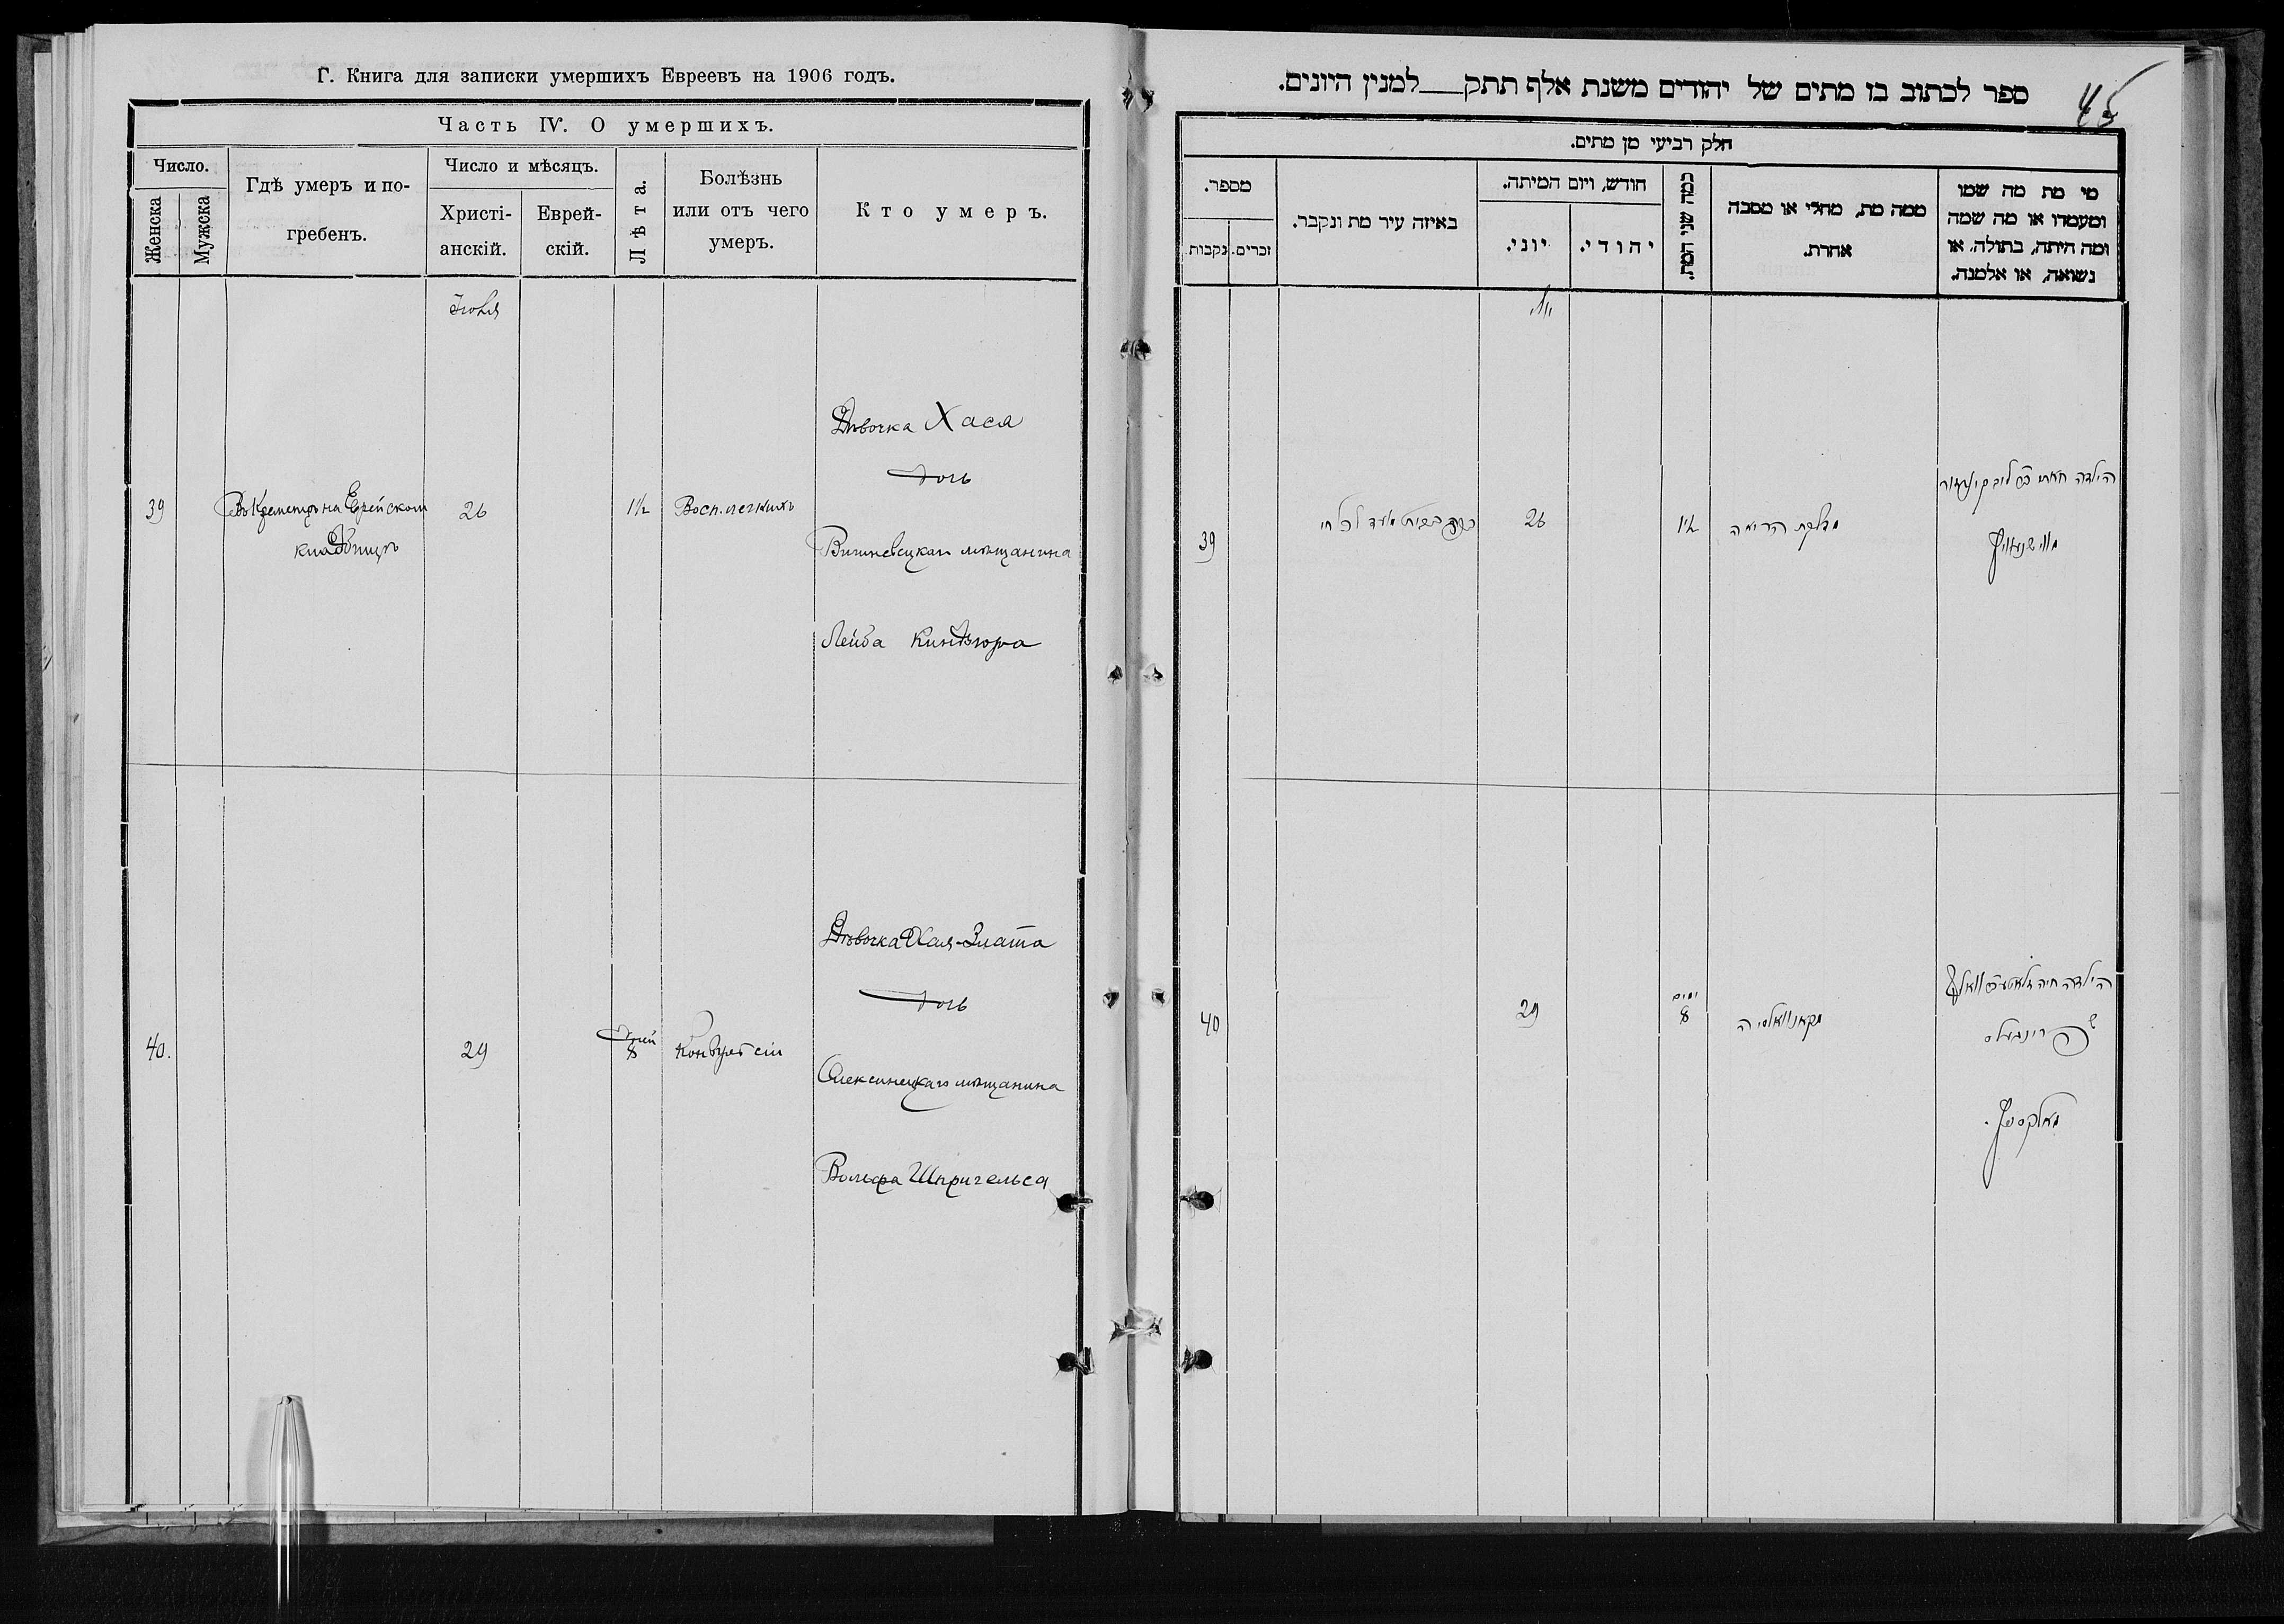 Г. Книга для записки умершихъ Евреевъ на 1906 годъ.
Часть IV. О умершихъ.
Число.
Женска
Мужска
Гдѣ умеръ и по-
гребенъ.
Число и мѣсяцъ.
Христі-
анскій.
Еврей-
скій.
Лѣта.
Болѣзнь
или отъ чего
умеръ.
Кто умеръ.
39
Въ Кременцѣ на Еврейском
кладбищѣ
26
1½
Восп. легкихъ
Дѣвочка Хася
дочь
Вишневецкаго мѣщанина
Лейба
40.
29
дней
8
Дѣвочка Хая-Злата
дочь
Олексинецкаго мѣщанина
Вольфа Шпригельса
ספר לכתוב בו מתים של יהודים משנת אלף תתק למנין היונים.
45
חלק רביעי מן מתים.
מספר.
נקבות
זכרים.
באיזה עיר מת ונקבר.
חודש, ויום המיתה.
יוני.
יהודי.
כמה שני המת.
ממה מת, מחלי או מסבה
אחרת.
מי מת מה שמו
ומעמדו או מה שמה
ומה היתה, בתולה, או
נשואה, או אלמנה.
39
26
1½
מדלקת הריאה
הילדה
40
29
ימים
8
הילדה חיה זלאטע